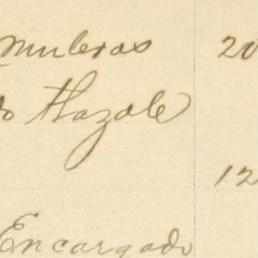 muleros 20
Hazale
12
Encargado